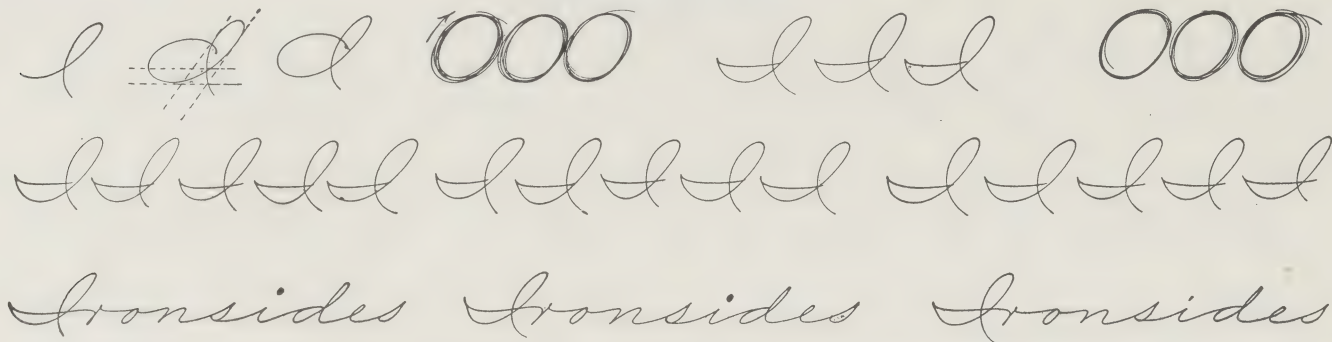 I I I O O O I I I O O O
I I I I I I I I I I I I I I I
Ironsides Ironsides Ironsides